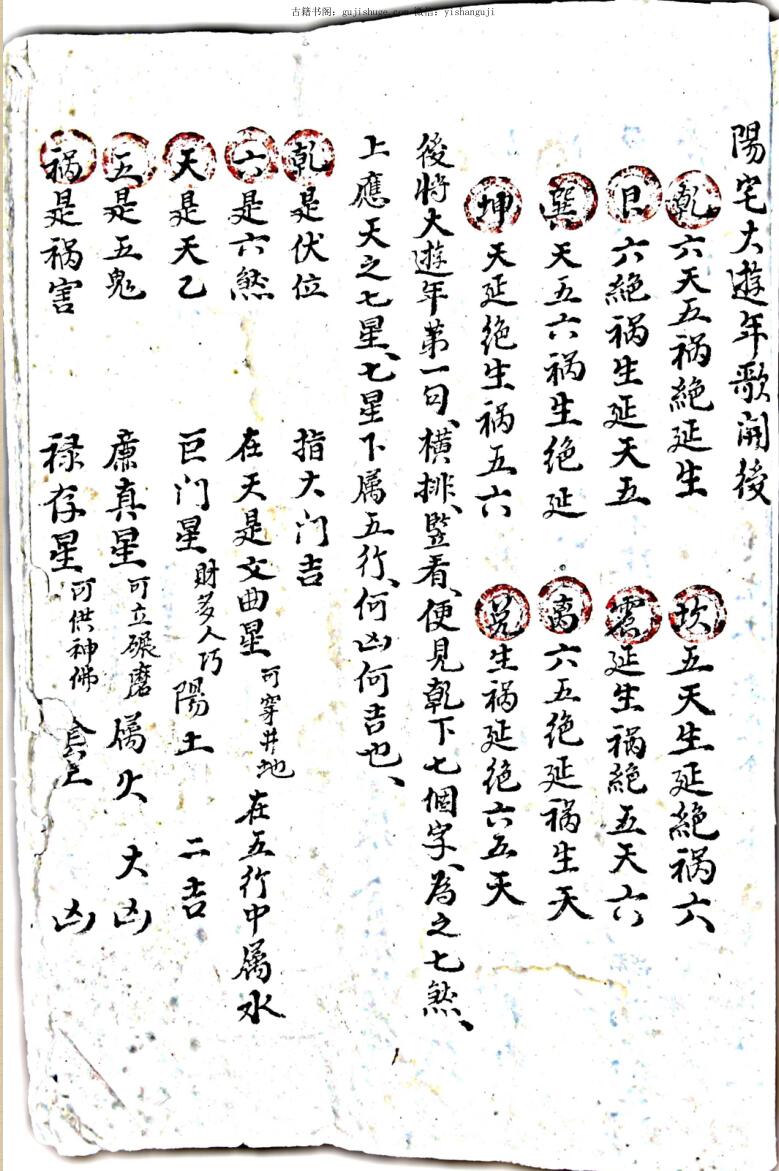 古籍书阁：gujishuge.com 微信：yishanguji
陽宅大遊年歌開後
乾六天五祸絶延生 坎五天生延絶祸六
艮六絶祸生延天五 震延生祸絶五天六
巽天五六祸生绝延 离六五绝延祸生天
坤天延绝生祸五六 兑生祸延绝六五天
後将大遊年第一句、横排、竪看、便見乾下七個字、為之七煞、
上應天之七星、七星下属五行、何凶何吉也、
乾是伏位 指大门吉
六是六煞 在天是文曲星 可穿井地 在五行中属水
天是天乙 巨门星 財多人巧 陽土 二吉
五是五鬼 廉真星 可立碾磨 属火 大凶
祸是祸害 禄存星 可供神佛 凶